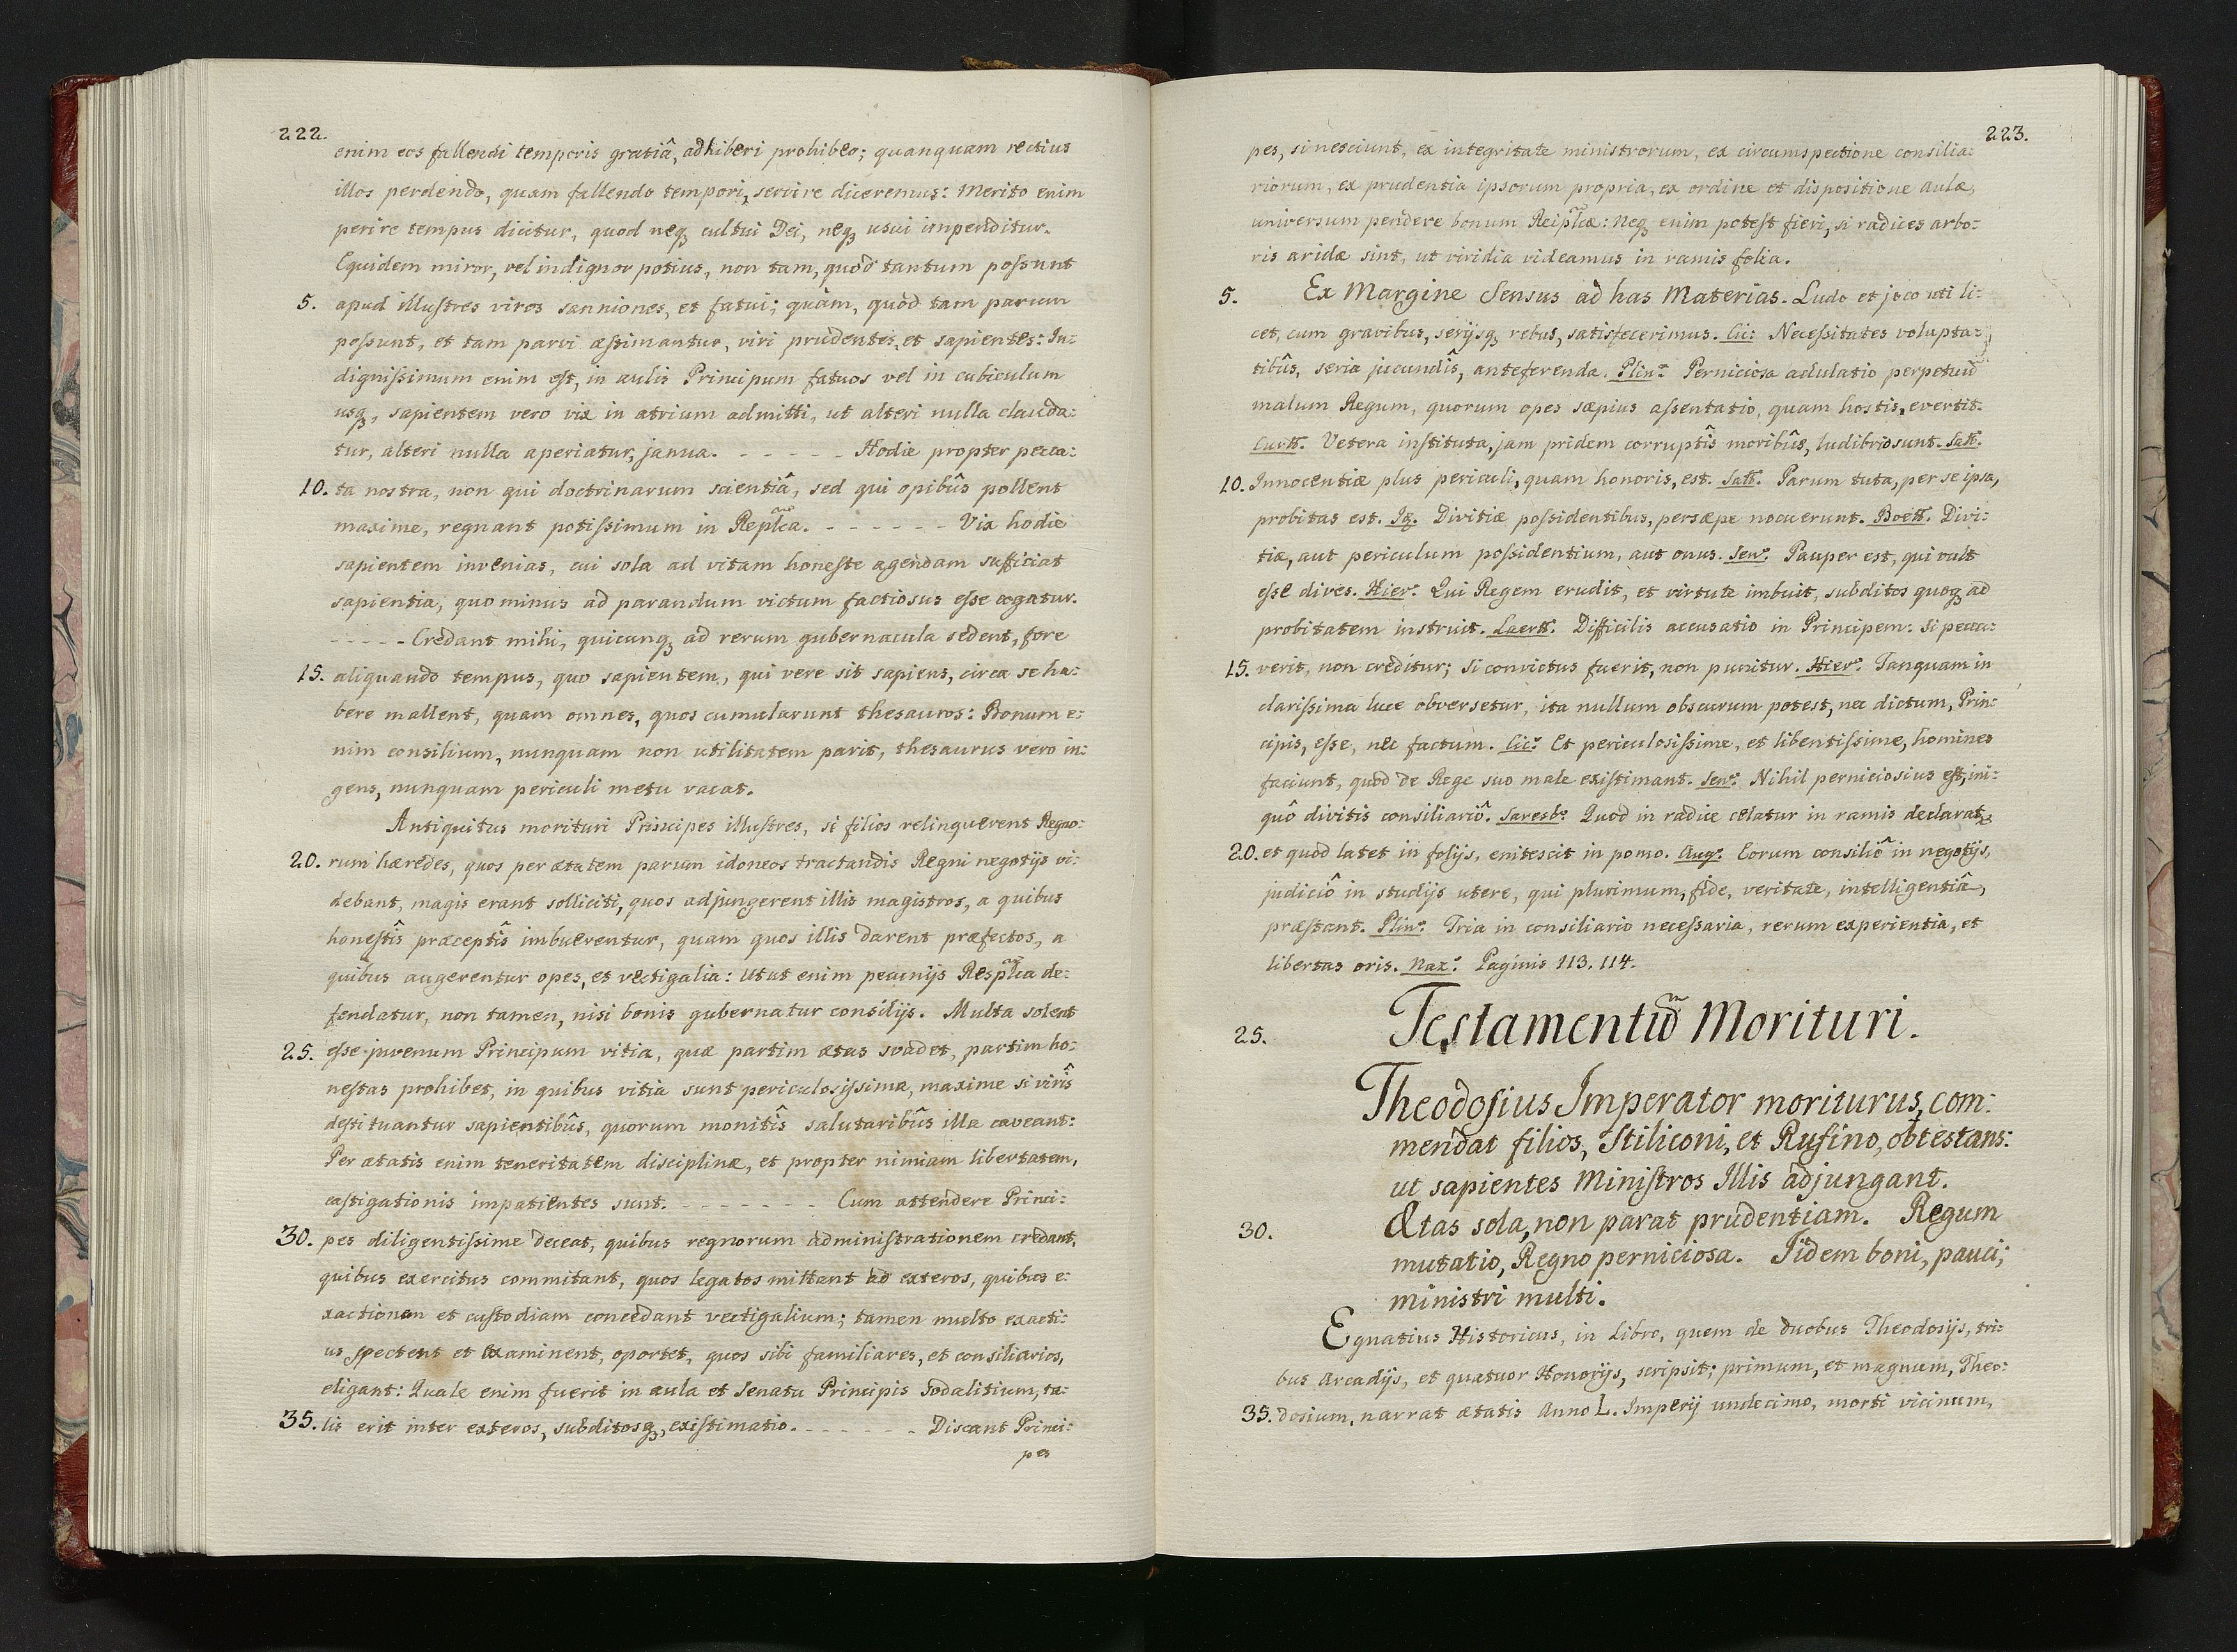 222.
enim eos fallendi temporis gratiâ, adhiberi prohibeo; quanquam rectius
illos perdendo, quam fallendo tempori, servire diceremus: Merito enim
perire tempus dicitur, quod neq, cultui Dei, neq, usui impenditur.
Equidem miror, vel indignor potius, non tam, quod tantum possunt
5. apud illustres viros sanniones, et fatui; quàm, quod tam parum
possunt, et tam parvi æstimantur, viri prudentes, et sapientes: In:
dignissimum enim est, in aulis Principum fatuos vel in cubiculum
usq, sapientem vero vix in atrium admitti, ut alteri nulla clauda:
tur, alteri nulla aperiatur, janua. - - - - - Hodie propter pecca:
10. ta nostra, non qui doctrinarum scientiâ, sed qui opibûs pollent
maxime, regnant potissimum in Replca. - - - - - - Vix hodie
sapientem invenias, cui sola ad vitam honeste agendam sufficiat
sapientia, quo minus ad parandum victum factiosus esse cogatur.
- - - - - Credant mihi, quicunq, ad rerum gubernacula sedent, fore
15. aliquando tempus, quo sapientem, qui vere sit sapiens, circa se ha:
bere mallent, quam omnes, quos cumularunt thesauros: Bonum e:
nim consilium, nunquam non utilitatem parit, thesaurus vero in:
gens, nunquam periculi metu vacat.
Antiquitus morituri Principes illustres, si filios relinquerent Regno:
20. rum hæredes, quos per ætatem parum idoneos tractandis Regni negotijs vi:
debant, magis erant solliciti, quos adjungerent illis magistros, a quibus
honestîs præceptîs imbuerentur, quam quos illis darent præfectos, a
quibus augerentur opes, et vectigalia: Utut enim pecunijs Resplca de:
fendatur, non tamen, nisi bonis gubernatur consilijs. Multa solent
25. esse juvenum Principum vitia, quæ partim ætas svadet, partim ho:
nestas prohibet, in quibus vitia sunt periculosissima, maxime si virîs
destituantur sapientibûs, quorum monitîs salutaribûs illa caveant:
Per ætatis enim teneritatem disciplinæ, et propter nimiam libertatem,
castigationis impatientes sunt. - - - - - - - Cum attendere Princi:
30. pes diligentissime deceat, quibus regnorum administrationem credant,
quibus exercitus commitant, quos legatos mittant ad exteros, quibus e:
xactionem et custodiam concedant vectigalium; tamen multo exacti:
us spectent et examinent, oportet, quos sibi familiares, et consiliarios,
eligant: Quale enim fuerit in aula et Senatu Principis Sodalitium, ta:
35. lis erit inter exteros, subditosq, existimatio. - - - - - - Discant Princi:
pes
223.
pes, si nesciunt, ex integritate ministrorum, ex circumspectione consilia:
riorum, ex prudentia ipsorum propria, ex ordine et dispositione Aulæ,
universum pendere bonum Reiplcæ: Neq, enim potest fieri, si radices arbo:
ris aridæ sint, ut viridia videamus in ramis folia.
5. Ex Margine Sensus ad has Materias. Ludo et joco uti li:
cet, cum gravibus, serijsq, rebus, satisfecerimus. Cic: Necessitates volupta:
tibûs, seria jucundîs, anteferenda. Plin: Perniciosa adulatio perpetuũ
malum Regum, quorum opes sæpius assentatio, quam hostis, evertit.
Curtt. Vetera instituta, jam pridem corruptîs moribûs, ludibrio sunt. Satt.
10. Innocentiæ plus periculi, quam honoris, est. Satt. Parum tuta, per se ipsa,
probitas est. Iq. Divitiæ possidentibus, persæpe nocuerunt. Boett. Divi:
tiæ, aut periculum possidentium, aut onus. Sen: Pauper est, qui vult
esse dives. Hier: Qui Regem erudit, et virtute imbuit, subditos quoq, ad
probitatem instruit. Laertt. Difficilis accusatio in Principem: Si pecca:
15. verit, non creditur; Si convictus fuerit, non punitur. Hier: Tanquam in
clarissima luce obversetur, ita nullum obscurum potest, nec dictum, Prin:
cipis, esse, nec factum. Cic: Et periculosissime, et libentissime, homines
faciunt, quòd de Rege suo male existimant. Sen: Nihil perniciosius est, ini:
quô divitis consiliariô. Saresb: Quod in radice celatur in ramis declarat,
20. et quod latet in folijs, enitescit in pomo. Aug: Eorum consiliô in negotijs,
judiciô in studijs utere, qui plurimum, fide, veritate, intelligentiâ,
præstant. Plin: Tria in consiliario necessaria, rerum experientia, et
libertas oris. Naz: Paginis 113. 114.
25. Testamentũ Morituri.
Theodosius Imperator moriturus, com:
mendat filios, Stiliconi, et Rufino, obtestans:
ut sapientes Ministros Illis adjungant.
30. Ætas sola, non parat prudentiam. Regum
mutatio, Regno perniciosa. Iidem boni, pauci;
ministri multi.
Egnatius Historicus, in Libro, quem de duobus Theodosijs, tri:
bus Arcadijs, et quatuor Honorijs, scripsit; primum, et magnum, Theo:
35. dosium, narrat ætatis Anno L. Imperij undecimo, morti vicinum,